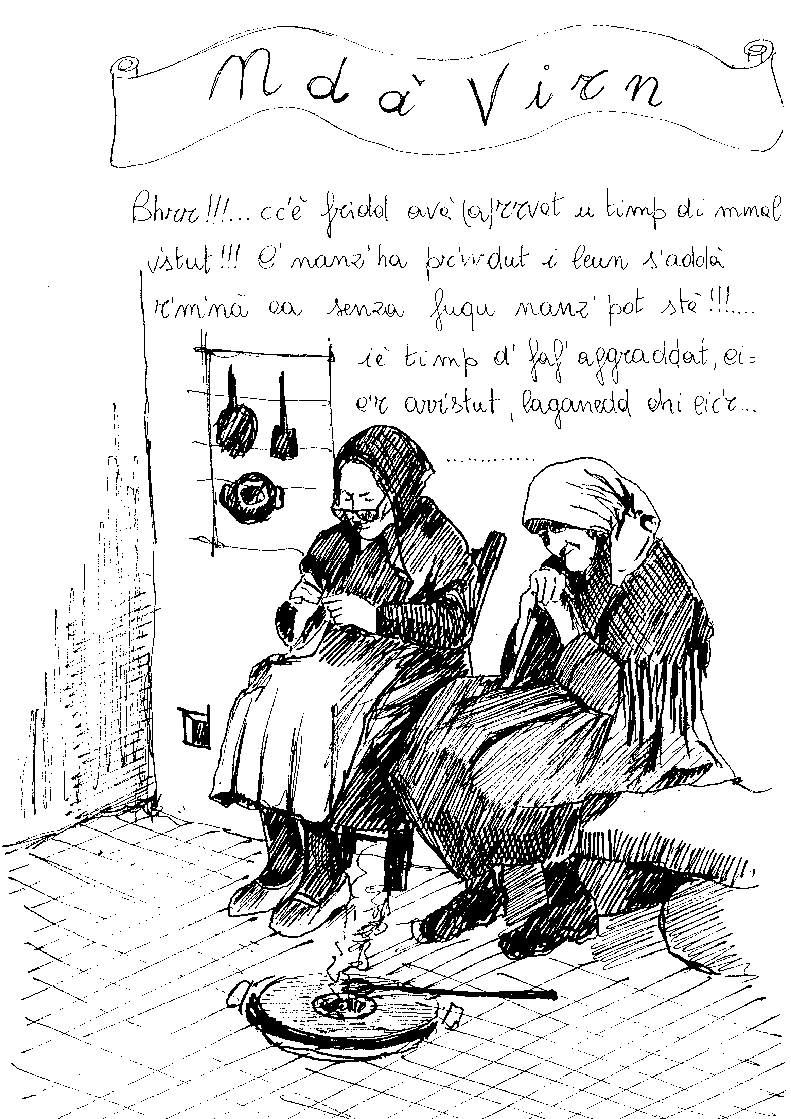 Mdà Virn
Bhrrr!!!... cc'è fridd avà (a)rrvat u timp di mmal
vistut!!! E' nanz'ha pruvvdut i leun s'addà
r'm'nà ca senza fuqu nanz' pot stè!!!....
iè timp d' faf' aggraddat, ci=
c'r avvistut, laganedd chi cic'r...
..............